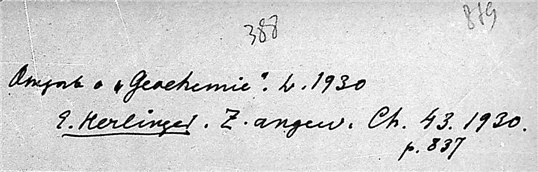 388
819
о „Geochemie". L. 1930
E. Kerlinger. Z. angew. Ch. 43. 1930.
p. 837